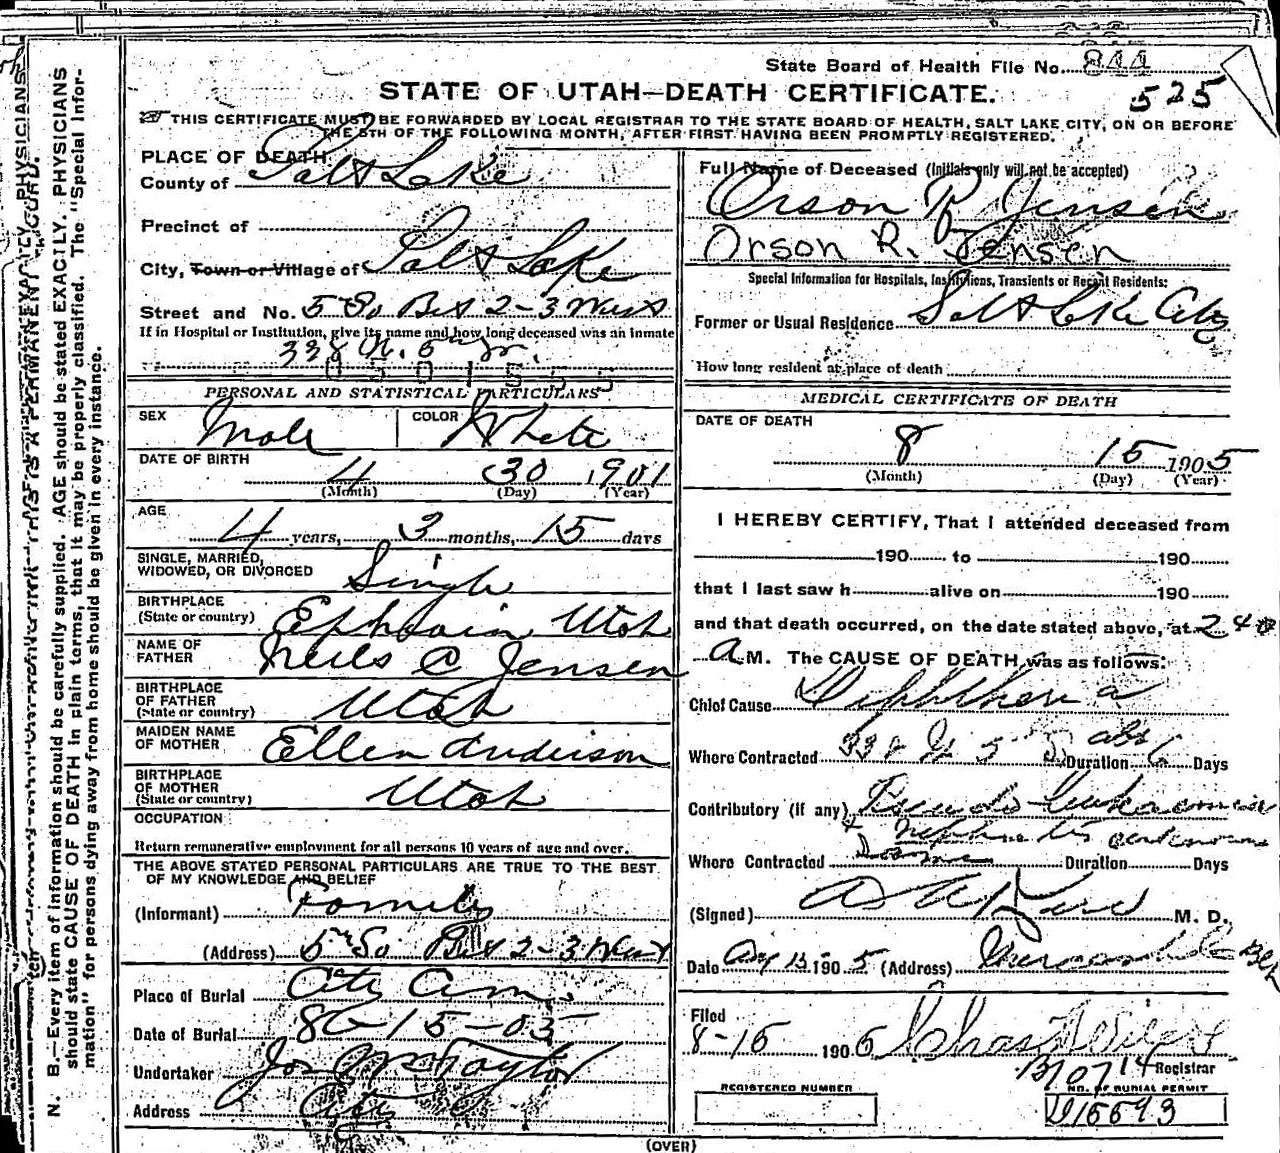 State Board of Health File No. 844
525
STATE OF UTAH—DEATH CERTIFICATE.
THIS CERTIFICATE MUST BE FORWARDED BY LOCAL REGISTRAR TO THE STATE BOARD OF HEALTH, SALT LAKE CITY, ON OR BEFORE
THE 5TH OF THE FOLLOWING MONTH, AFTER FIRST HAVING BEEN PROMPTLY REGISTERED.
PLACE OF DEATH
County of Salt Lake
Precinct of
City, Town or Village of Salt Lake
Street and No. 5 So Bet 2-3 West
If in Hospital or Institution, give its name and how long deceased was an inmate
338 N. 5
PERSONAL AND STATISTICAL PARTICULARS
SEX Male COLOR White
DATE OF BIRTH 4 30 1901
(Month) (Day) (Year)
AGE
4 years, 3 months, 15 days
SINGLE, MARRIED,
WIDOWED, OR DIVORCED Single
BIRTHPLACE
(State or country) Ephraim Utah
NAME OF
FATHER Neils C Jensen
BIRTHPLACE
OF FATHER
(State or country) Utah
MAIDEN NAME
OF MOTHER Ellen Anderson
BIRTHPLACE
OF MOTHER
(State or country) Utah
OCCUPATION
Return remunerative employment for all persons 10 years of age and over.
THE ABOVE STATED PERSONAL PARTICULARS ARE TRUE TO THE BEST
OF MY KNOWLEDGE AND BELIEF
(Informant) Family
(Address) 5th So Bet 2-3 West
Place of Burial City Cem.
Date of Burial 8-15-05
Undertaker Jos Taylor
Address City
Full Name of Deceased (Initials only will not be accepted)
Orson R Jensen
Orson R. Jensen
Special Information for Hospitals, Institutions, Transients or Recent Residents:
Former or Usual Residence Salt Lake City
How long resident at place of death
MEDICAL CERTIFICATE OF DEATH
DATE OF DEATH
8 15 1905
(Month) (Day) (Year)
I HEREBY CERTIFY, That I attended deceased from
190 to 190
that I last saw h alive on 190
and that death occurred, on the date stated above, at 240
A M. The CAUSE OF DEATH was as follows:
Chief Cause Diphtheria
Where Contracted 338 N 5 Duration abt 6 Days
Contributory (if any) Pseudo leukaemia
+ Nephritis unknown
Where Contracted Same Duration Days
(Signed) M. D.
Date Aug 15 1905 (Address) Mercantile Blk
Filed
8-16 1905 Chas
Registrar
B10714
REGISTERED NUMBER NO. OF BURIAL PERMIT
U15593
(OVER)
N. B.—Every item of information should be carefully supplied. AGE should be stated EXACTLY. PHYSICIANS
should state CAUSE OF DEATH in plain terms, that it may be properly classified. The "Special Infor-
mation" for persons dying away from home should be given in every instance.